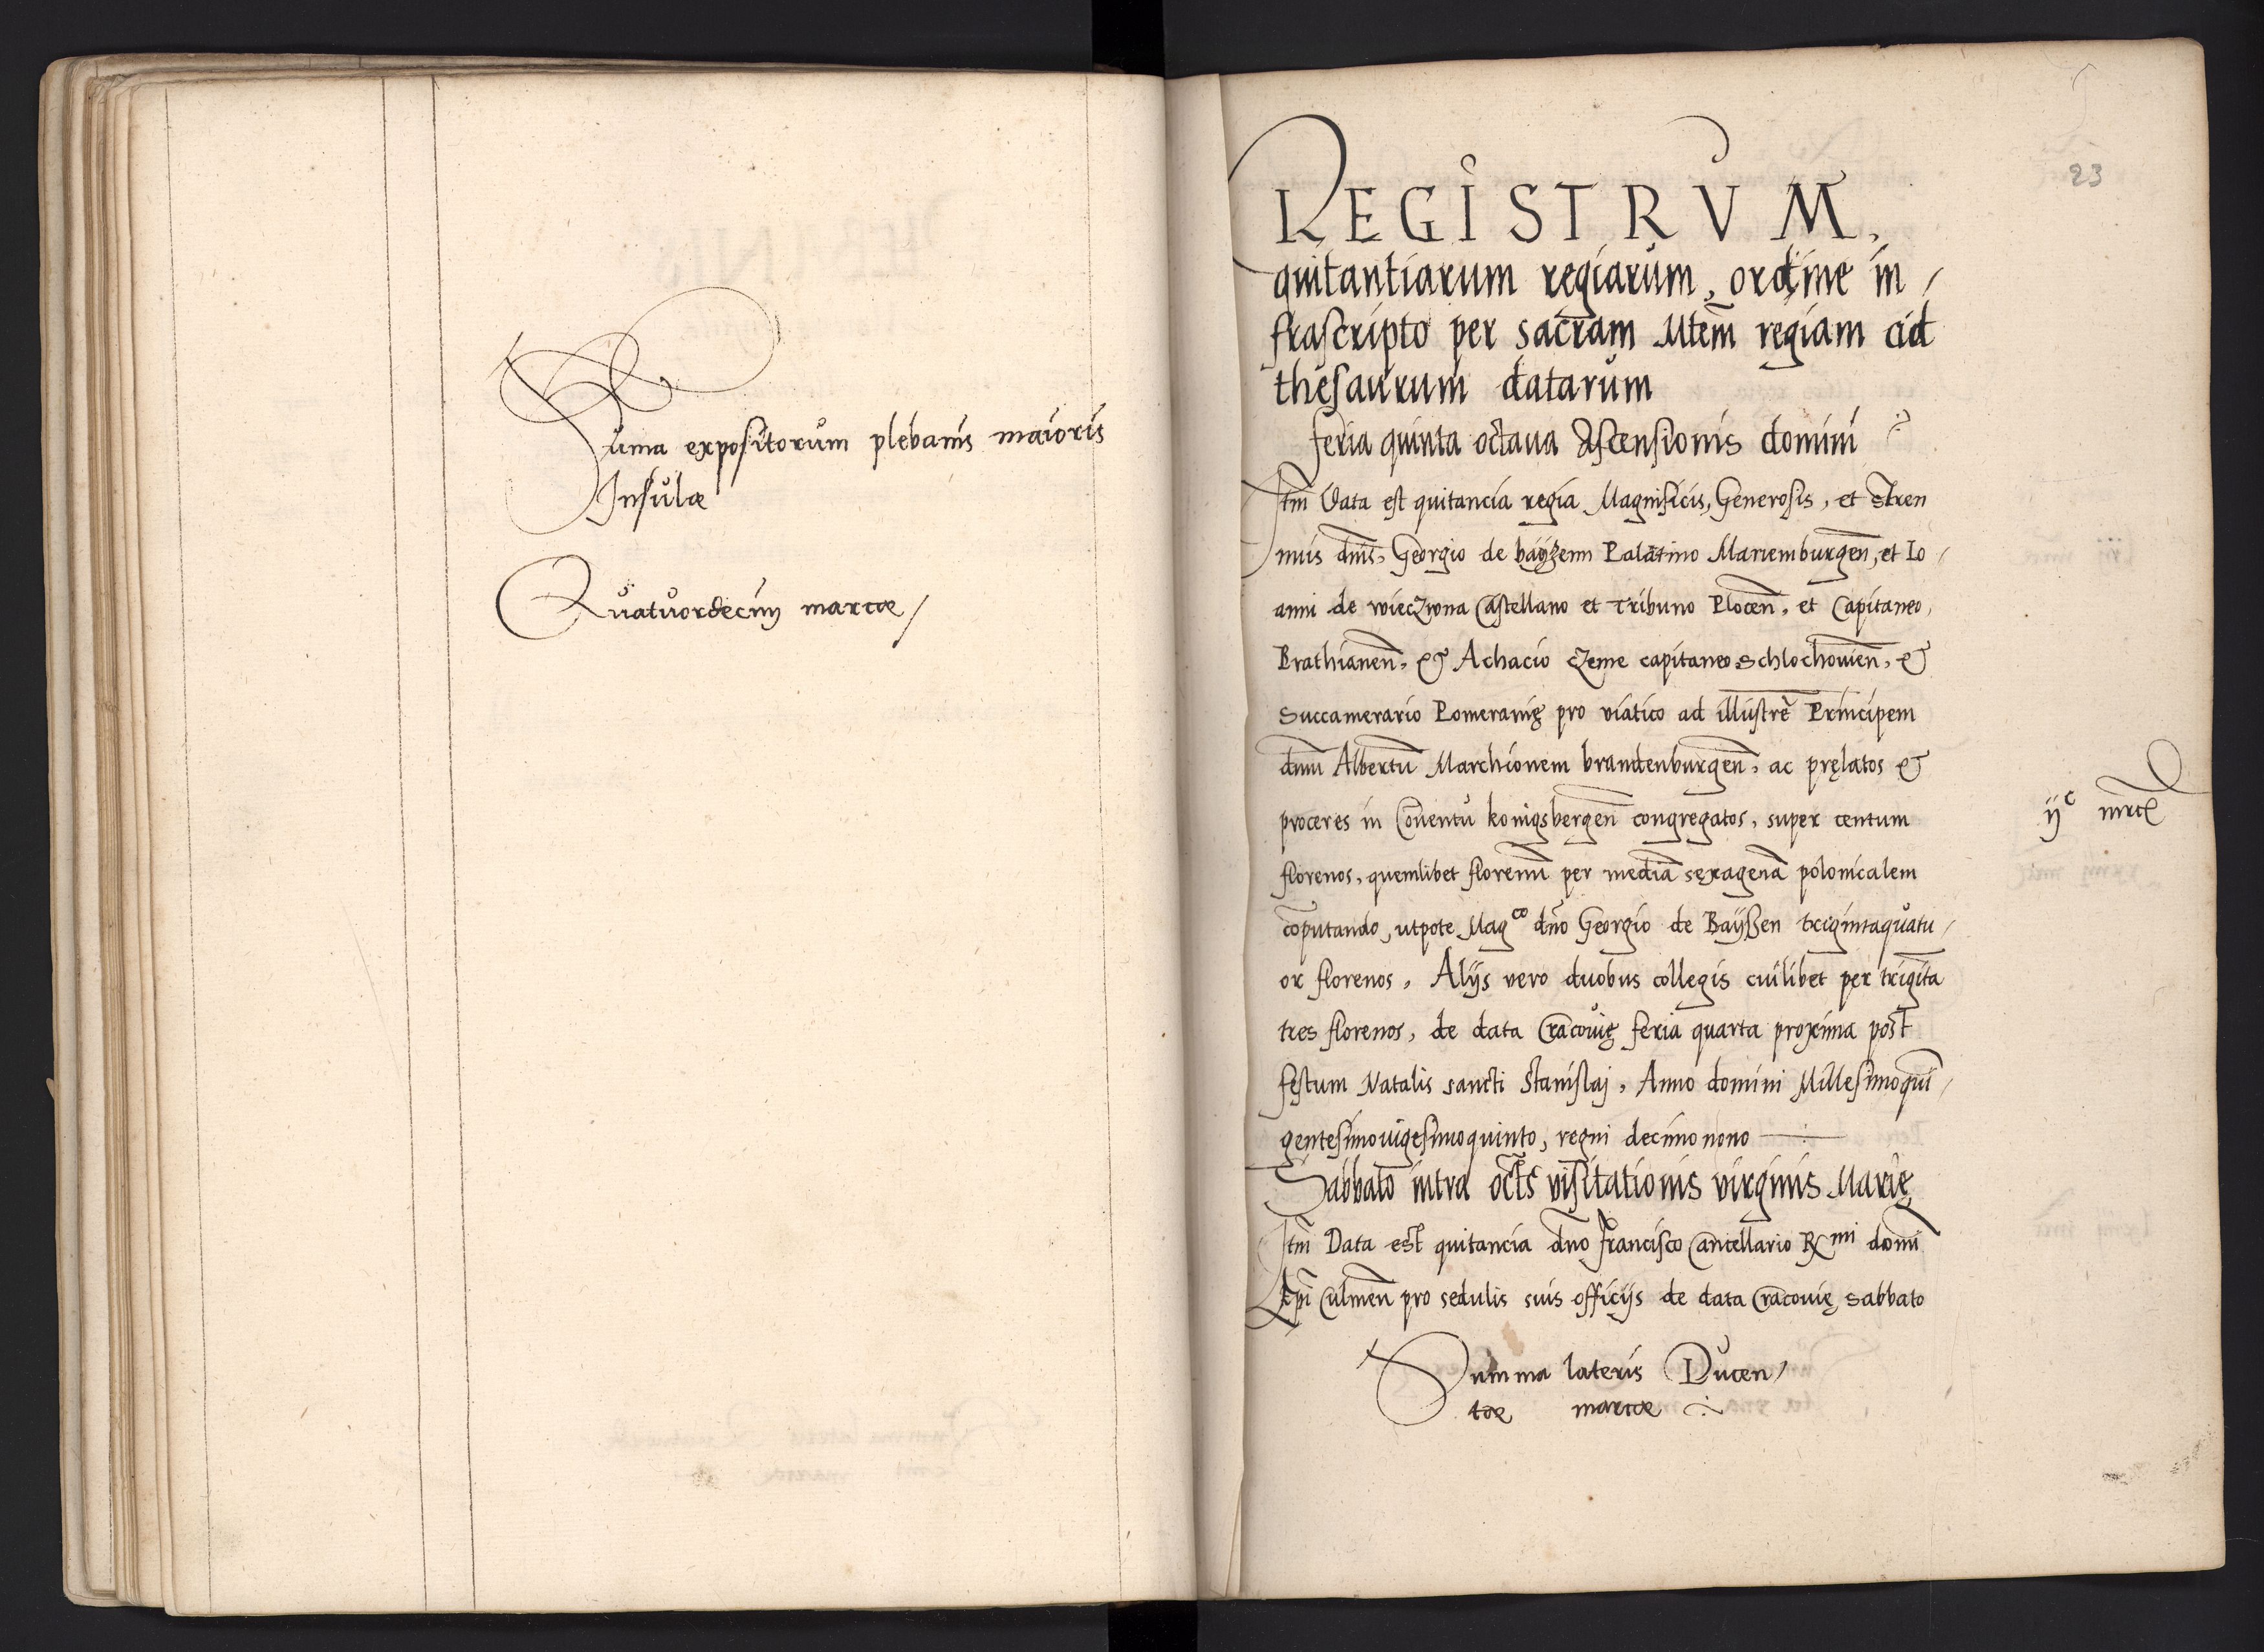 Suma expositorum plebanis maioris
Insulæ
Quatuordecim marcæ /
23
REGISTRVM,
quitantiarum regiarum, ordine in /
frascripto per sacram Mtem̄ regiam ad
thesaurum datarum
feria quinta octaua Ascensionis domini
Itm̄ Data est quitancia regia Magnificis, Generosis, et Stren
nuis dn̄is, Georgio de bayʒenn Palatino Mariemburgen̄, et Io /
anni de wieczwna Castellano et Tribuno Plocen̄, et Capitaneo,
Brathianen̄, & Achacio czeme capitaneo Schlochouien̄, &
Succamerario Pomeranię pro viatico ad illustrē Principem
dnū Albertū Marchionem brandenburgen̄, ac pręlatos &
proceres in Cōuentu konigsbergen̄ congregatos, super centum
florenos, quemlibet florenū per mediā sexagenā polonicalem
cōputando, utpote Mag^co dn̄o Georgio de Bayßen trigintaquatu /
or florenos, Alijs vero duobus collegis cuilibet per trigīta
tres florenos, de data Cracouię feria quarta proxima post
festum Natalis sancti Stanislaj, Anno domini Millesimoqui /
gentesimouigesimoquinto, regni decimo nono
ij^c mrc
Sabbato intra oct̄s visitationis virginis Marię
Itm̄ Data est quitancia dn̄o Francisco Cancellario R^mi domi
Ep̄i Culmen̄ pro sedulis suis officijs de data Cracouię sabbato
Summa lateris Ducen /
tæ marcæ